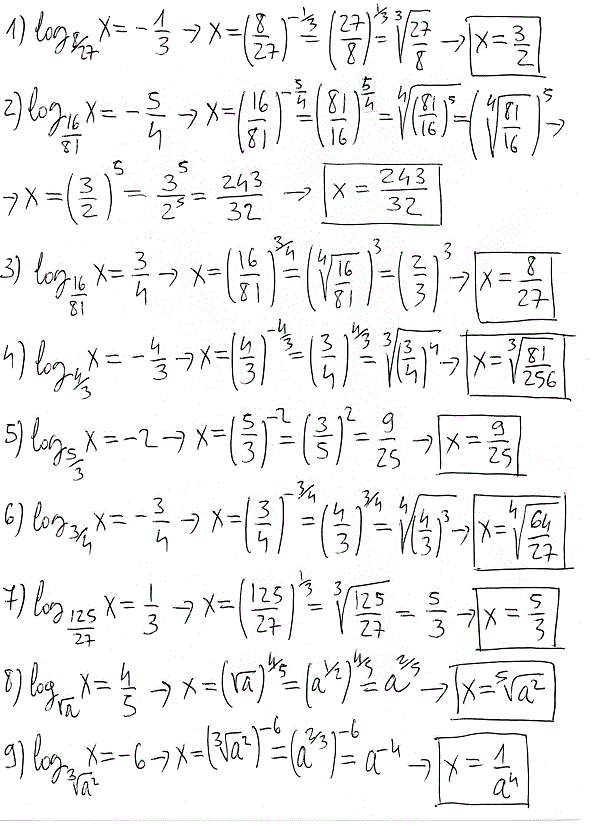 1) log_{8/27} x = -1/3 → x = (8/27)^{-1/3} = (27/8)^{1/3} = ∛(27/8) → x = 3/2
2) log_{16/81} x = -5/4 → x = (16/81)^{-5/4} = (81/16)^{5/4} = ∜((81/16)^5) = (∜(81/16))^5 →
→ x = (3/2)^5 = 3^5/2^5 = 243/32 → x = 243/32
3) log_{16/81} x = 3/4 → x = (16/81)^{3/4} = (∜(16/81))^3 = (2/3)^3 → x = 8/27
4) log_{4/3} x = -4/3 → x = (4/3)^{-4/3} = (3/4)^{4/3} = ∛((3/4)^4) → x = ∛(81/256)
5) log_{5/3} x = -2 → x = (5/3)^{-2} = (3/5)^2 = 9/25 → x = 9/25
6) log_{3/4} x = -3/4 → x = (3/4)^{-3/4} = (4/3)^{3/4} = ∜((4/3)^3) → x = ∜(64/27)
7) log_{125/27} x = 1/3 → x = (125/27)^{1/3} = ∛(125/27) = 5/3 → x = 5/3
8) log_{√a} x = 4/5 → x = (√a)^{4/5} = (a^{1/2})^{4/5} = a^{2/5} → x = ⁵√(a^2)
9) log_{∛(a^2)} x = -6 → x = (∛(a^2))^{-6} = (a^{2/3})^{-6} = a^{-4} → x = 1/a^4